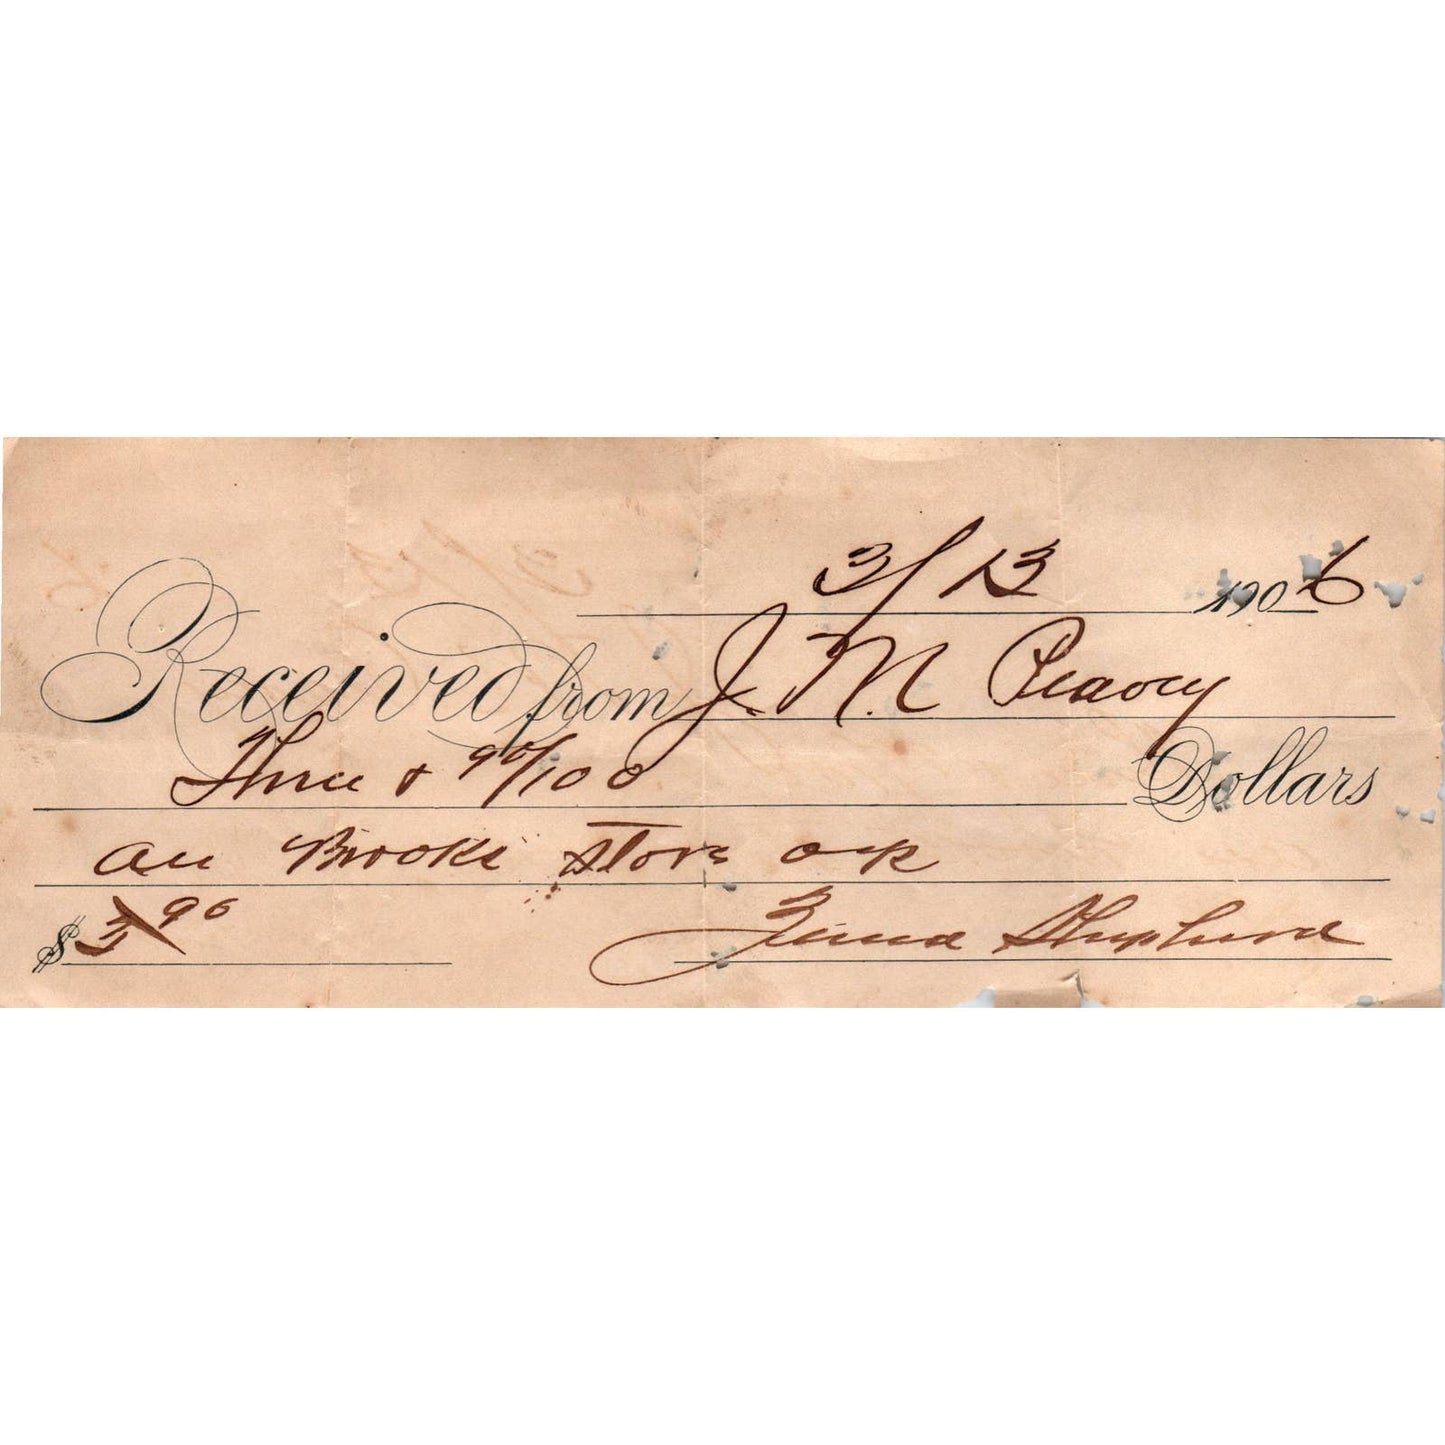 3/13 1906
Received from J. M. Peavey
Three & 90/100 Dollars
Brooks store
$3 90 Shepherd